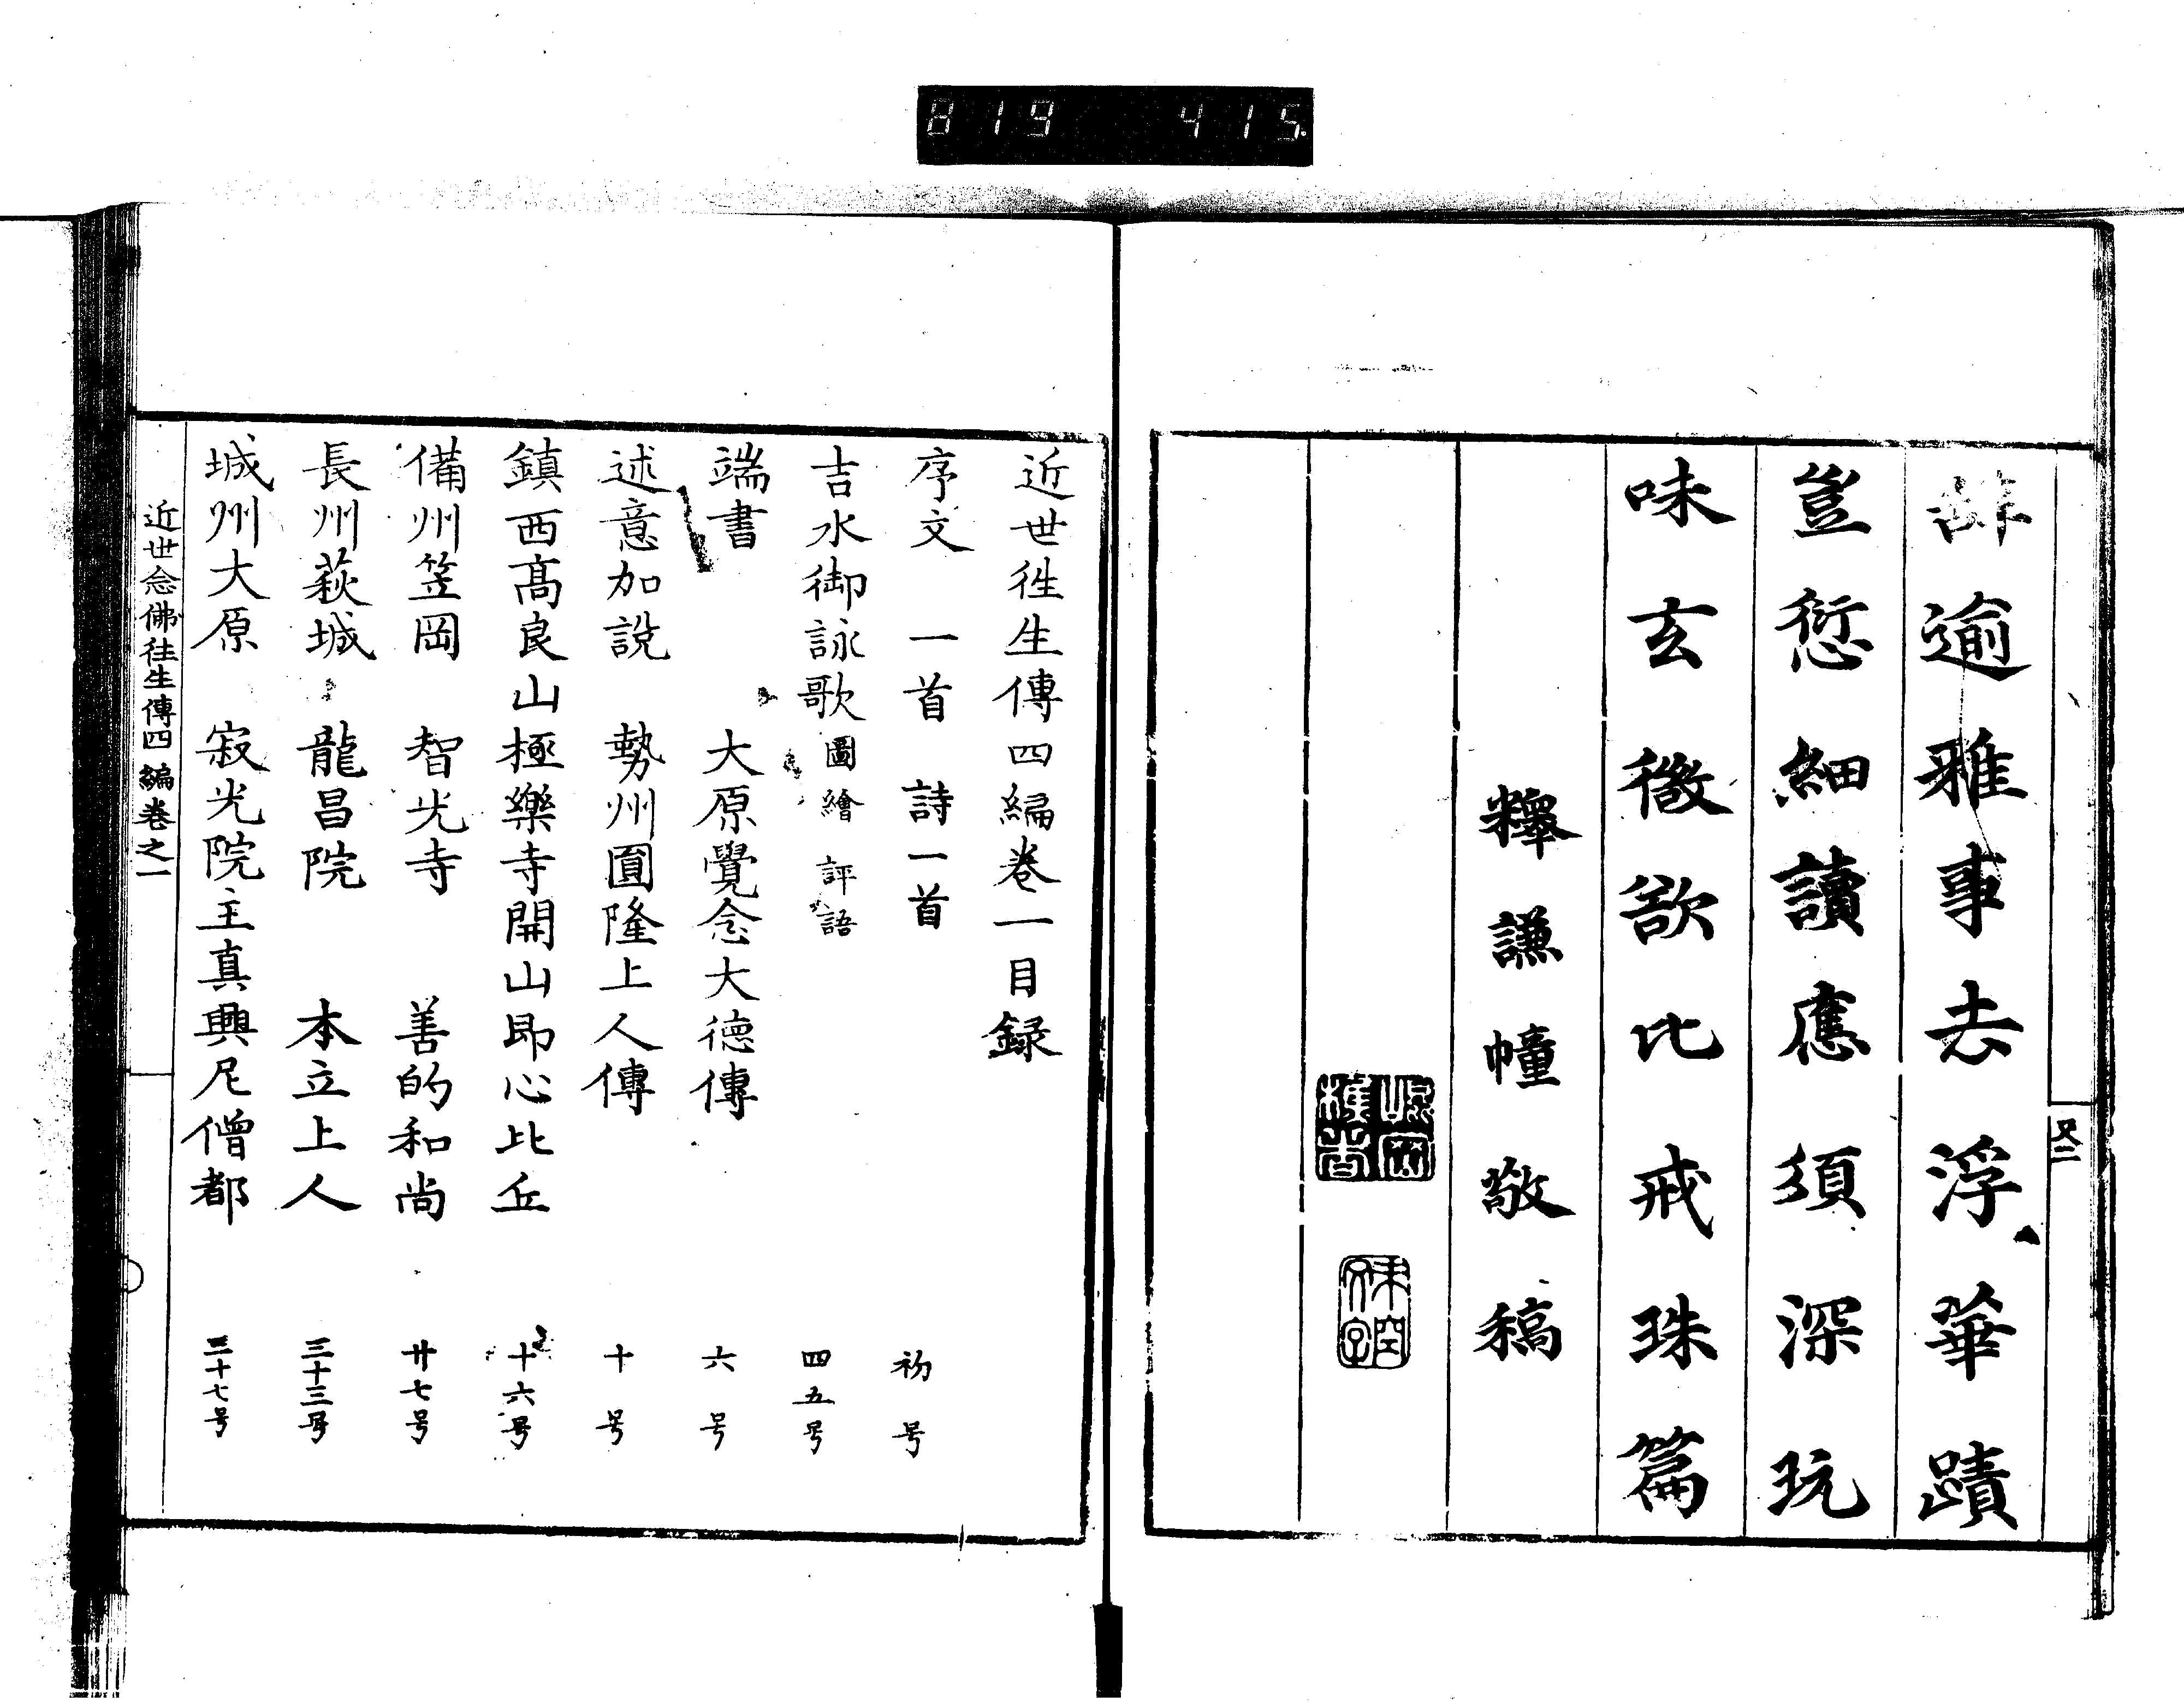 819 415
又二
辭逾雅事去浮華蹟
豈愆細讀應須深玩
味玄微欲比戒珠篇
釋謙幢敬稿
近世徃生傳四編卷一目録
序文 一首 詩一首 初号
吉水御詠歌 圖繪 評語 四五号
端書 大原覺念大徳傳 六号
述意加説 勢州圓隆上人傳 十号
鎮西髙良山極樂寺開山即心比丘 十六号
備州笠岡 智光寺 善的和尚 廿七号
長州萩城 龍昌院 本立上人 三十三号
城州大原 寂光院主真興尼僧都 三十七号
近世念佛徃生傳四編卷之一